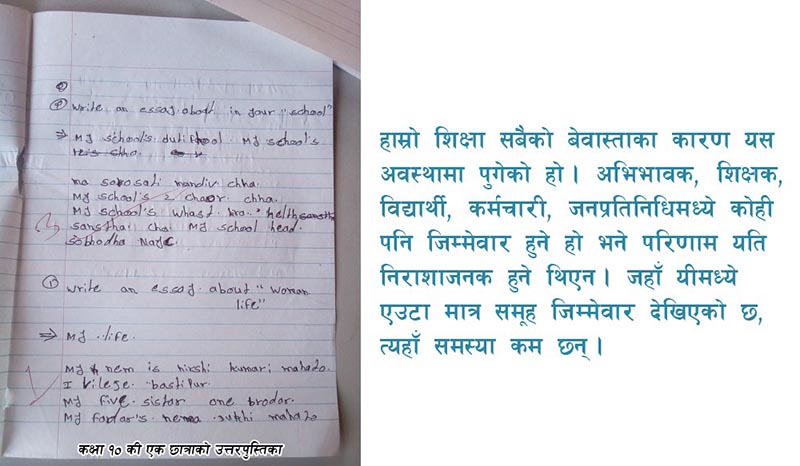 Write an essay about in your "school"
⇒ My school's dutifhool. My school's
ma sorosati mandir chha.
My school's 2 chaor chha.
My school's whast kra. helthsanstha
sansthai chai My school head.
① Write an essay about "woman
life"
⇒ My life.
My nem is nirshi kumari mahato.
I vilege bastipur.
My five sistar one brodar.
My fardar's nema sukhi mahato
कक्षा १० की एक छात्राको उत्तरपुस्तिका
हाम्रो शिक्षा सबैको बेवास्ताका कारण यस
अवस्थामा पुगेको हो । अभिभावक, शिक्षक,
विद्यार्थी, कर्मचारी, जनप्रतिनिधिमध्ये कोही
पनि जिम्मेवार हुने हो भने परिणाम यति
निराशाजनक हुने थिएन । जहाँ यीमध्ये
एउटा मात्र समूह जिम्मेवार देखिएको छ,
त्यहाँ समस्या कम छन् ।